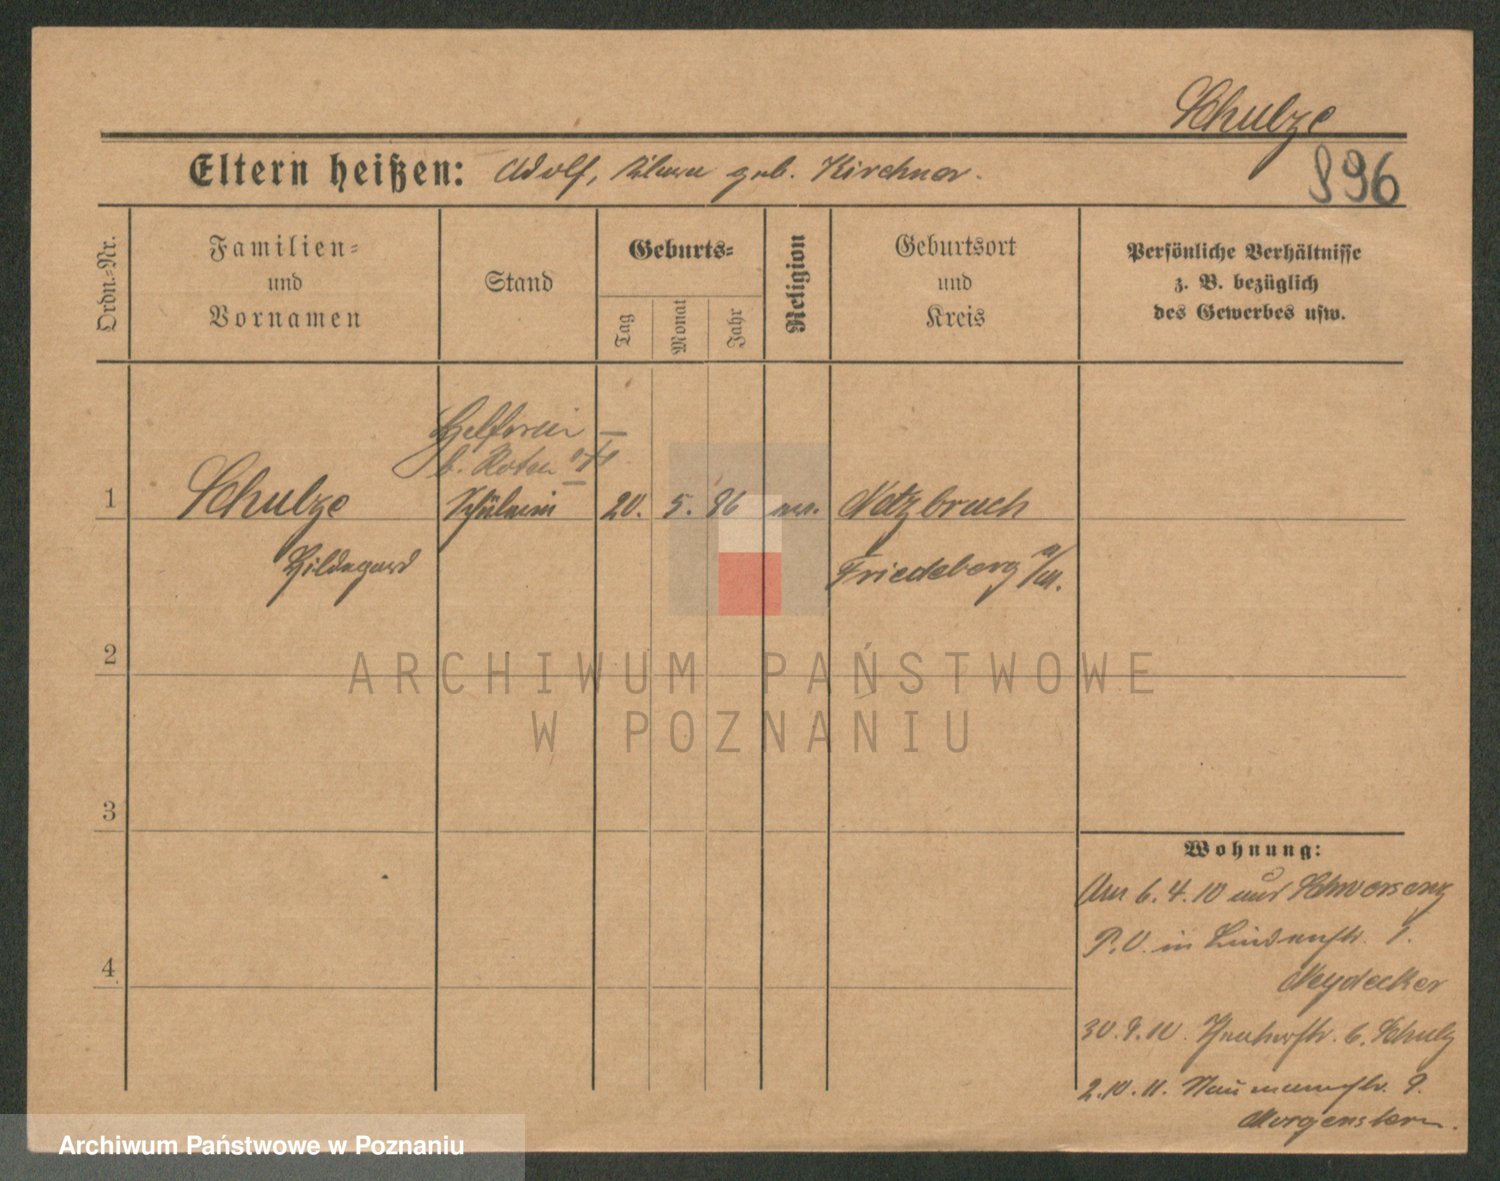 Schulze
Eltern heißen: Adolf, geb. Kirchner.
896
Ordn.-Nr.
Familien-
und
Vornamen
Stand
Geburts-
Tag
Monat
Jahr
Religion
Geburtsort
und
Kreis
Persönliche Verhältnisse
z. B. bezüglich
des Gewerbes usw.
Helferin
b. Roten
1
Schulze
Schülerin
20. 5. 96
Netzbruch
Hildegard
Friedeberg a/M.
2
ARCHIWUM PAŃSTWOWE
W POZNANIU
3
4
Wohnung:
Am 6.4.10 aus Schwersenz
P.O. in Lindenstr. 1.
Neydecker
30.9.10. 6. Schulz
2.10.11. Naumannstr. 9.
Morgenstern.
Archiwum Państwowe w Poznaniu